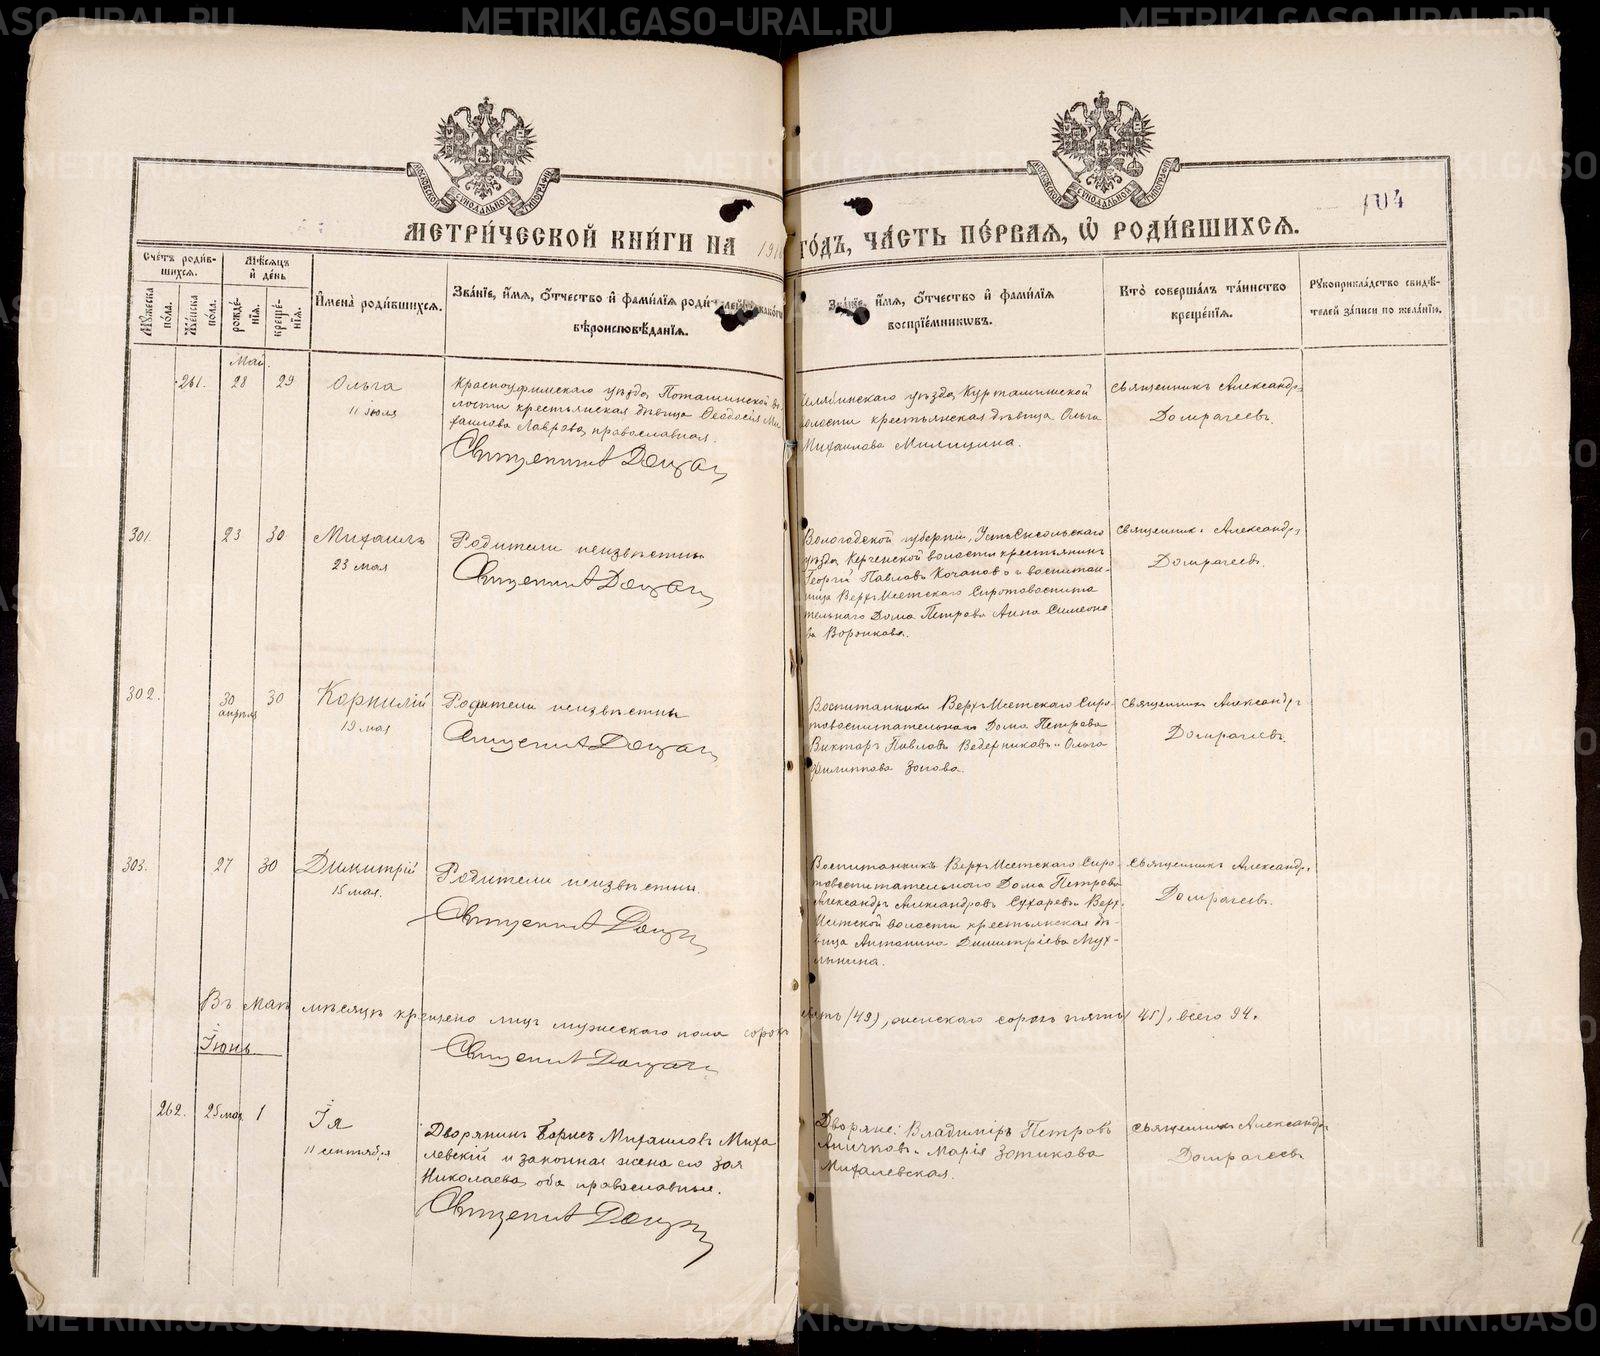 МЕТРИ́ЧЕСКОЙ КНИ́ГИ НА 191 ГО́ДЪ, ЧА́СТЬ ПЕ́РВАЯ, Ѡ РОДИ́ВШИХСЯ.
104
Сче́тъ роди́в-
шихся.
Му́жеска по́ла.
Же́нска по́ла.
Мѣ́сяцъ и де́нь
рожде́-
нїя.
креще́-
нїя.
И҆мена̀ роди́вшихся.
Зва́нїе, и҆́мя, о҆́тчество и҆ фамй́лїя роди́
вѣроисповѣ́данїя.
Зва́нїе, и҆́мя, о҆́тчество и҆ фамй́лїя
восприе́мниковъ.
Кто̀ соверша́лъ та́инство
креще́нїя.
Рукоприкла́дство свидѣ́-
телей за́писи по жела́нїю.
Май.
261. 28 29 Ольга
11 іюля
Красноуфимскаго уѣзда, Поташинской во-
лости крестьянская дѣвица Ѳеодосія Ми-
хаилова Лаврова, православная.
Священникъ
Челябинскаго уѣзда, Куртамышской
волости крестьянская дѣвица Ольга
Михаилова Милицина.
Священникъ Александръ
Домрачеевъ.
301. 23 30 Михаилъ
23 мая
Родители неизвѣстны
Священникъ
Вологодской губерніи, Усть-Сысольскаго
уѣзда, Керчемской волости крестьянинъ
Георгій Павловъ Кочановъ и воспитан-
ница Верхъ-Исетскаго Сиротовоспита
тельнаго Дома Петрова Анна Симеоно
ва Воронкова.
Священникъ Александръ
Домрачеевъ.
302. 30 апрѣля 30 Корнилій
19 мая
Родители неизвѣстны
Священникъ
Воспитанники Верхъ-Исетскаго Сиро-
товоспитательнаго Дома Петрова
Викторъ Павловъ Ведерниковъ и Ольга
Филиппова Зотова.
Священникъ Александръ
Домрачеевъ.
303. 27 30 Димитрій
15 мая.
Родители неизвѣстны.
Священникъ
Воспитанникъ Верхъ-Исетскаго Сиро-
товоспитательнаго Дома Петрова
Александръ Александровъ Сухаревъ и Верхъ-
Исетской волости крестьянская дѣ-
вица Антонина Димитріева Мух-
лынина.
Священникъ Александръ
Домрачеевъ.
Въ маѣ мѣсяцѣ крещено лицъ мужескаго пола сорокъ
вять (49), женскаго сорокъ пять (45), всего 94.
Священникъ
Іюнь
262. 25 мая 1 Ія
11 сентября
Дворянинъ Борисъ Михаиловъ Миха
левскій и законная жена его Зоя
Николаева, оба православные.
Священникъ
Дворяне: Владиміръ Петровъ
Аничковъ и Марія Зотикова
Михалевская.
Священникъ Александръ
Домрачеевъ
METRIKI.GASO-URAL.RU